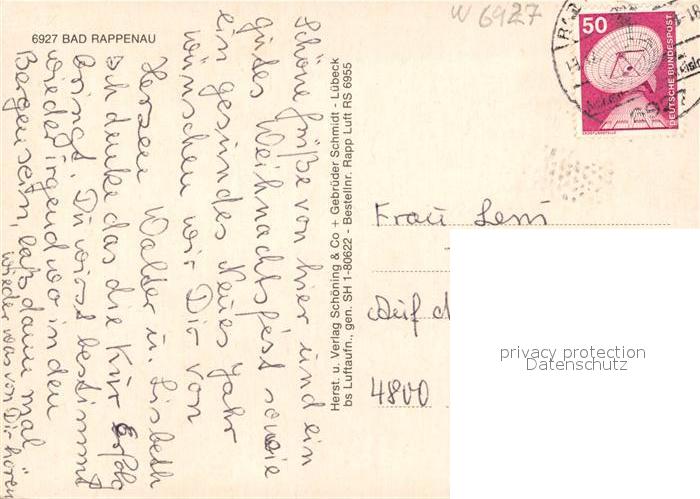 W 6927
6927 BAD RAPPENAU
Schöne Grüße von hier und ein
gutes Weihnachtsfest sowie
ein gesundes Neues Jahr
wünschen wir Dir von
Herzen Walder u. Lisbeth
Ich denke das die Kur Erfolg
bringt. Du wirst bestimmt
wieder irgendwo in den
Bergen sein, laß dann mal
wieder was von Dir hören
Herst. u. Verlag Schöning & Co + Gebrüder Schmidt - Lübeck
bs Luftaufn., gen. SH 1-80622 - Bestellnr. Rapp Luft RS 6955
50
DEUTSCHE BUNDESPOST
ERDEFUNKSTELLE
Frau Leni
Auf d
4800
privacy protection
Datenschutz